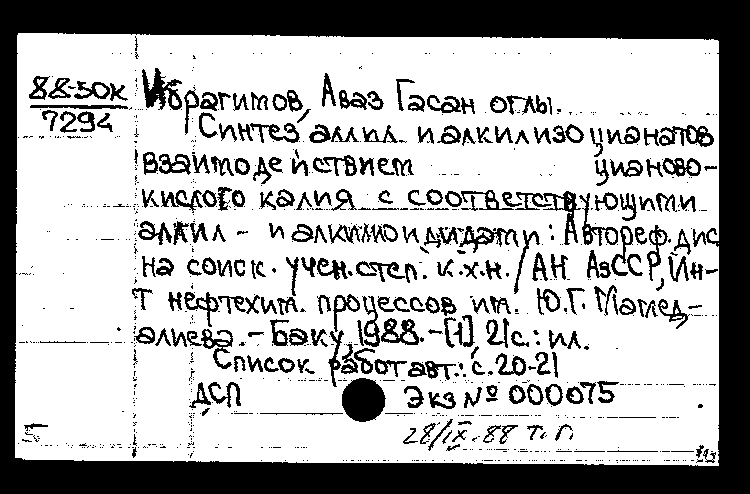 88-50к
7294
Ибрагимов, Аваз Гасан оглы.
Синтез аллил и алкилизоцианатов
взаимодействием циановo-
кислого калия с соответствующими
алкил - и алкил : Автореф. дис
на соиск. учен. степ. к.х.н. / АН АзССР, Ин-
т нефтехим. процессов им. Ю.Г. Мамед-
алиева. – Баку, 1988. – [1], 21с. : ил.
Список работ авт.: с. 20-21
ДСП Экз № 000075
28/IX-88 т. п.